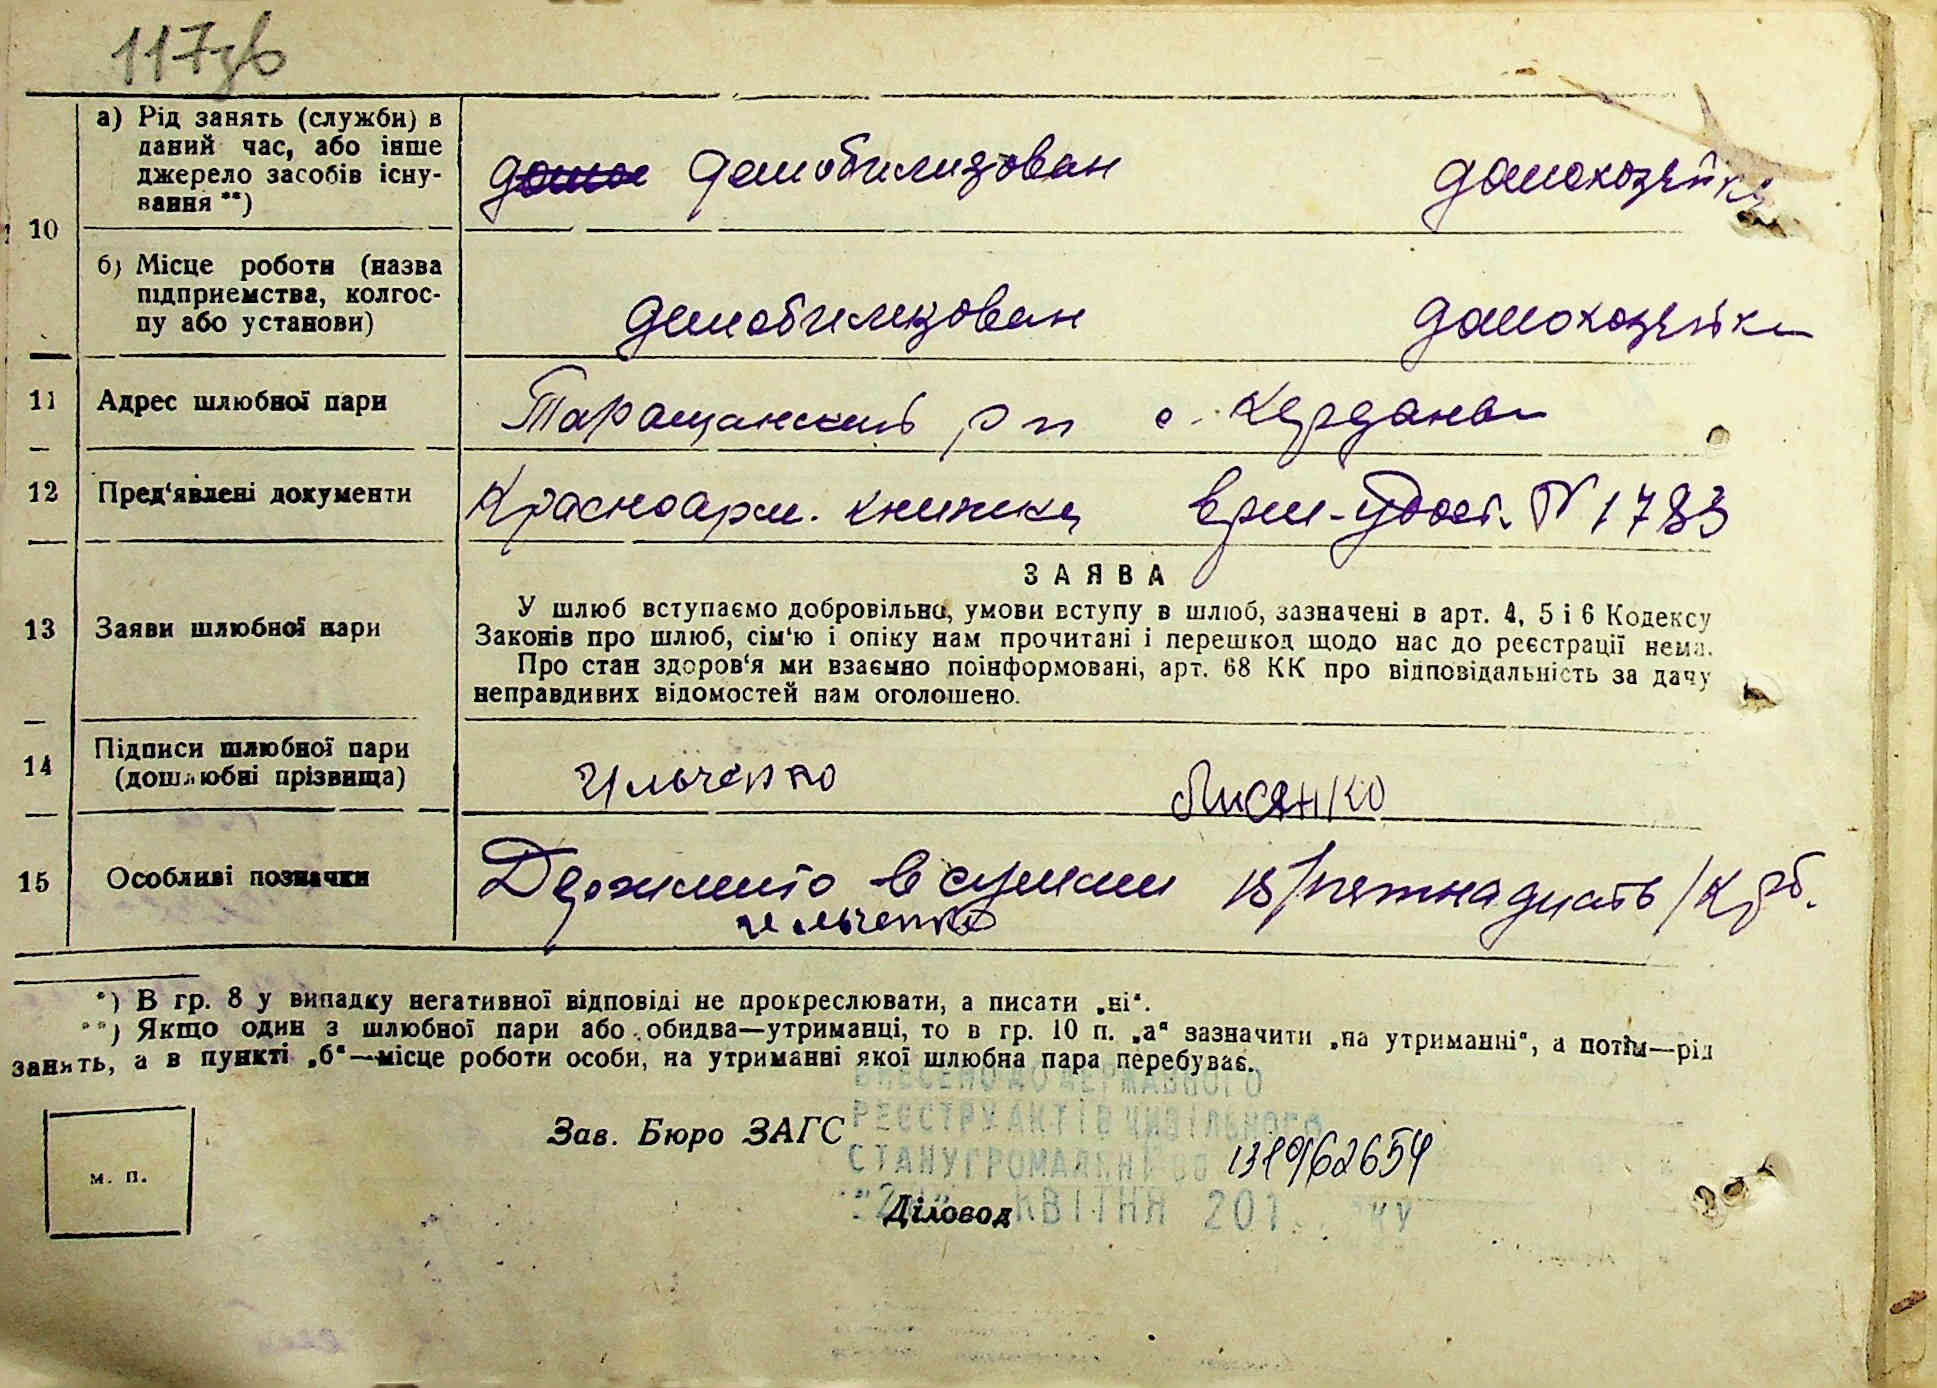 117зв
а) Рід занять (служби) в
даний час, або інше
джерело засобів існу-
вання **)
демобилизован домохозяйка
10
б) Місце роботи (назва
підприємства, колгос-
пу або установи)
демобилизован домохозяйка
11 Адрес шлюбної пари Таращанский р н с. Керданы
12 Пред'явлені документи Красноарм. книжка врем-удост. N 1783
ЗАЯВА
13 Заяви шлюбної пари
У шлюб вступаємо добровільно, умови вступу в шлюб, зазначені в арт. 4, 5 і 6 Кодексу
Законів про шлюб, сім'ю і опіку нам прочитані і перешкод щодо нас до реєстрації нема.
Про стан здоров'я ми взаємно поінформовані, арт. 68 КК про відповідальність за дачу
неправдивих відомостей нам оголошено.
14 Підписи шлюбної пари
(дошлюбні прізвища)
Ильченко Лисянко
15 Особливі позначки Держмито в сумме 15/пятнадцать/крб.
Ильченко
*) В гр. 8 у випадку негативної відповіді не прокреслювати, а писати „ні“.
**) Якщо один з шлюбної пари або обидва—утриманці, то в гр. 10 п. „а“ зазначити „на утриманні“, а потім—рід
занять, а в пункті „б“—місце роботи особи, на утриманні якої шлюбна пара перебуває.
ВНЕСЕНО ДО ДЕРЖАВНОГО
РЕЄСТРУ АКТІВ ЦИВІЛЬНОГО
Зав. Бюро ЗАГС
СТАНУ ГРОМАДЯН
м. п.
Діловод
КВІТНЯ 201